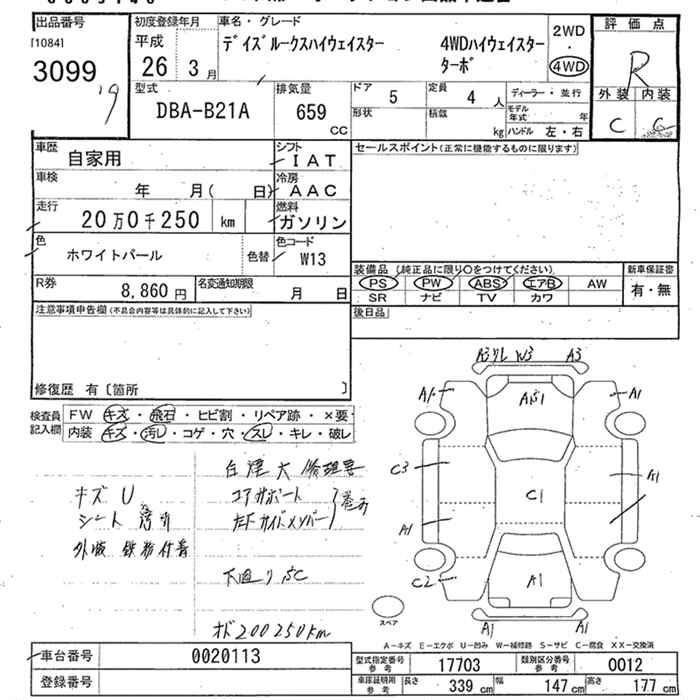 出品番号
[1084]
3099
'9
初度登録年月
平成
26 3月
車名・グレード
デイズルークスハイウェイスター 4WDハイウェイスター
ターボ
2WD
・
4WD
評価点
R
外装 内装
C C
型式
DBA-B21A
排気量
659
CC
ドア
5
定員
4人
形状
積載
kg
ディーラー・並行
モデル年式 年
ハンドル 左・右
車歴
自家用
シフト
IAT
車検
年 月( 日)
冷房
AAC
走行
20万0千250 km
燃料
ガソリン
色
ホワイトパール
色替
色コード
W13
R券
8,860円
名変通知期限
月 日
セールスポイント(正常に機能するものに限ります)
装備品 (純正品に限り○をつけてください)
PS PW ABS エアB AW
SR ナビ TV カワ
新車保証書
有・無
後日品
注意事項申告欄(不具合内容等は具体的に記入して下さい)
修復歴 有〔箇所 〕
検査員
記入欄
FW キズ・飛石・ヒビ割・リペア跡・×要
内装 キズ・汚レ・コゲ・穴・スレ・キレ・破レ
キズ U
シート
外板 鉄粉付着
コアサポート
下廻り S C
オド200250km
A3 リレ W3 A3
A1 A1
C3
C1
A1
A1
C2
A1
A1 A1
スペア
A-キズ E-エクボ U-凹み W-補修跡 S-サビ C-腐食 XX-交換済
車台番号
0020113
登録番号
型式指定番号
参考
17703
類別区分番号
参考
0012
車庫証明用
参考
長さ 339 cm
幅 147 cm
高さ 177 cm